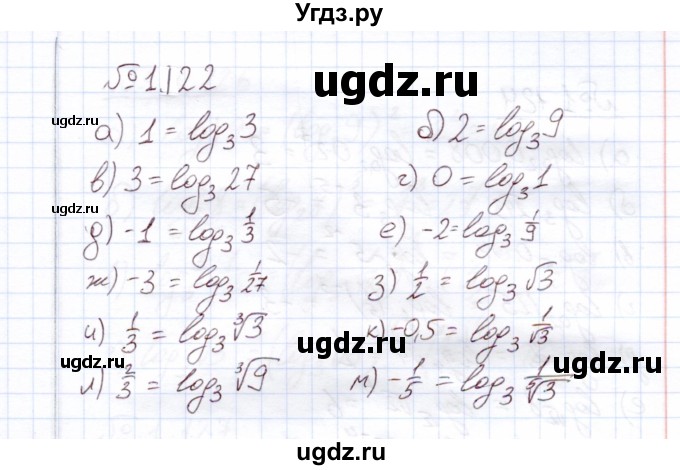 Угдз.ру
№ 1.122 ugdz.ru
а) 1 = log₃ 3 б) 2 = log₃ 9
в) 3 = log₃ 27 г) 0 = log₃ 1
ugdz.ru ugdz.ru
д) -1 = log₃ 1/3 е) -2 = log₃ 1/9
ж) -3 = log₃ 1/27 з) 1/2 = log₃ √3
ugdz.ru
и) 1/3 = log₃ ∛3 к) -0,5 = log₃ 1/√3
ugdz.ru ugdz.ru
л) 2/3 = log₃ ∛9 м) -1/5 = log₃ 1/⁵√3
ugdz.ru